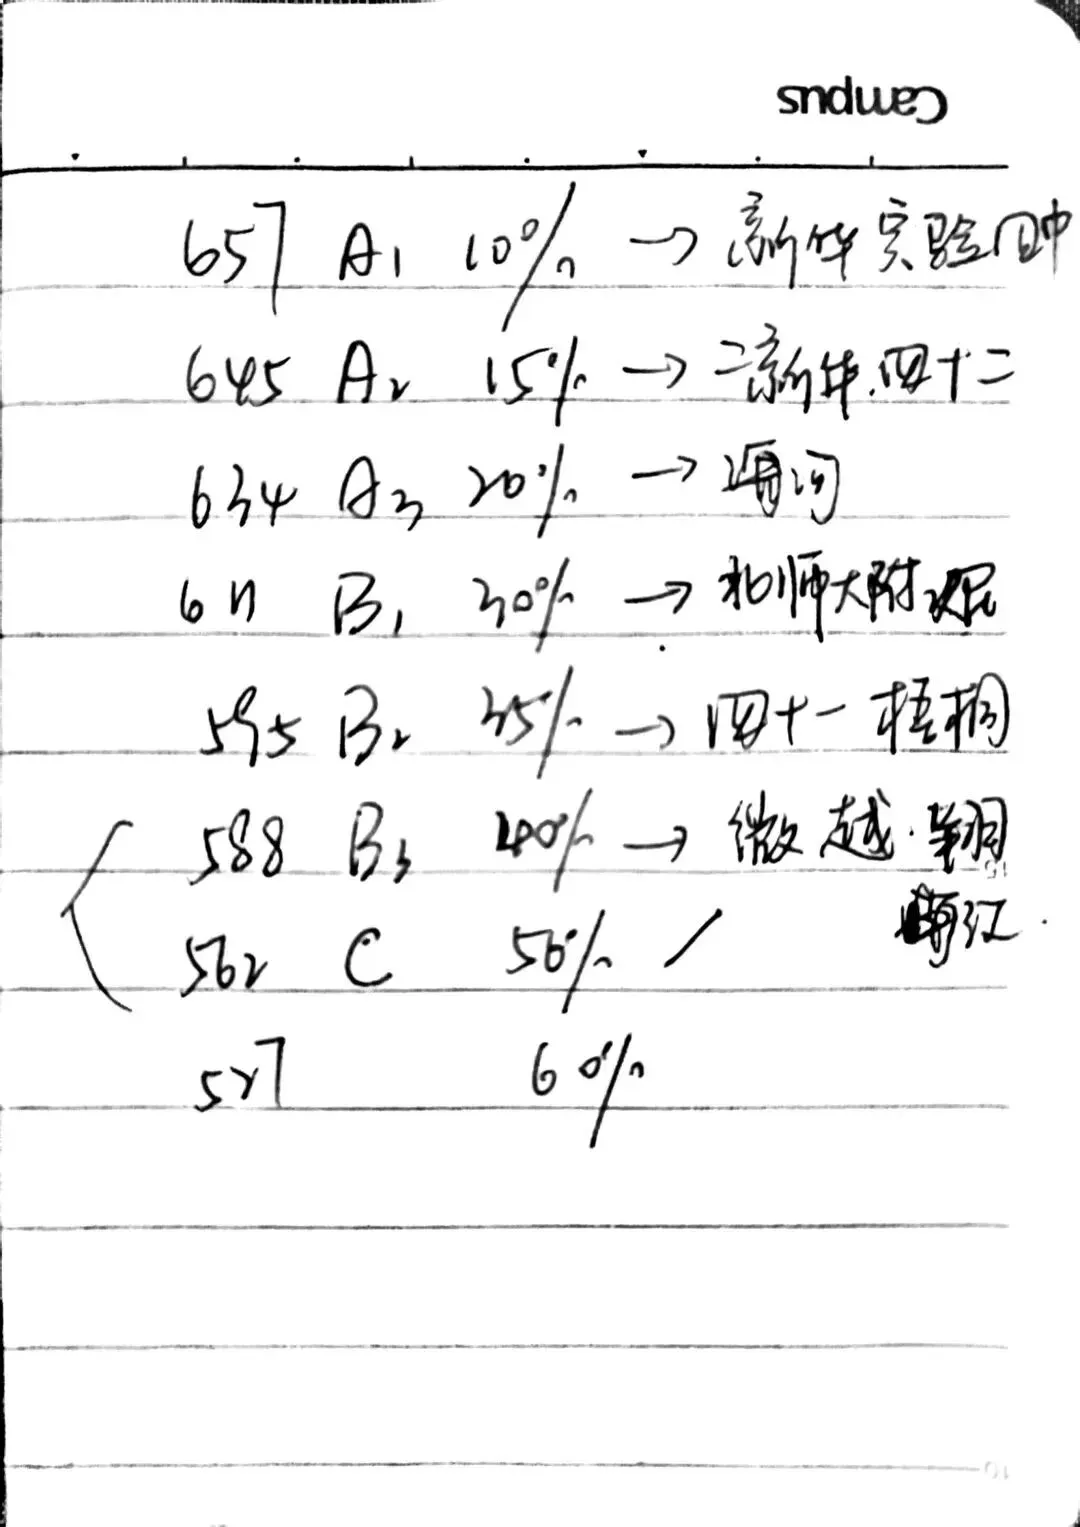 Campus
657 A1 10% → 新华 实验 田中
645 A2 15% → 二新华.四十二
634 A3 20% → 海河
611 B1 30% → 北师大附
595 B2 35% → 四十一 梧桐
588 B3 40% → 微 越·翔
562 C 50% /
527 60%